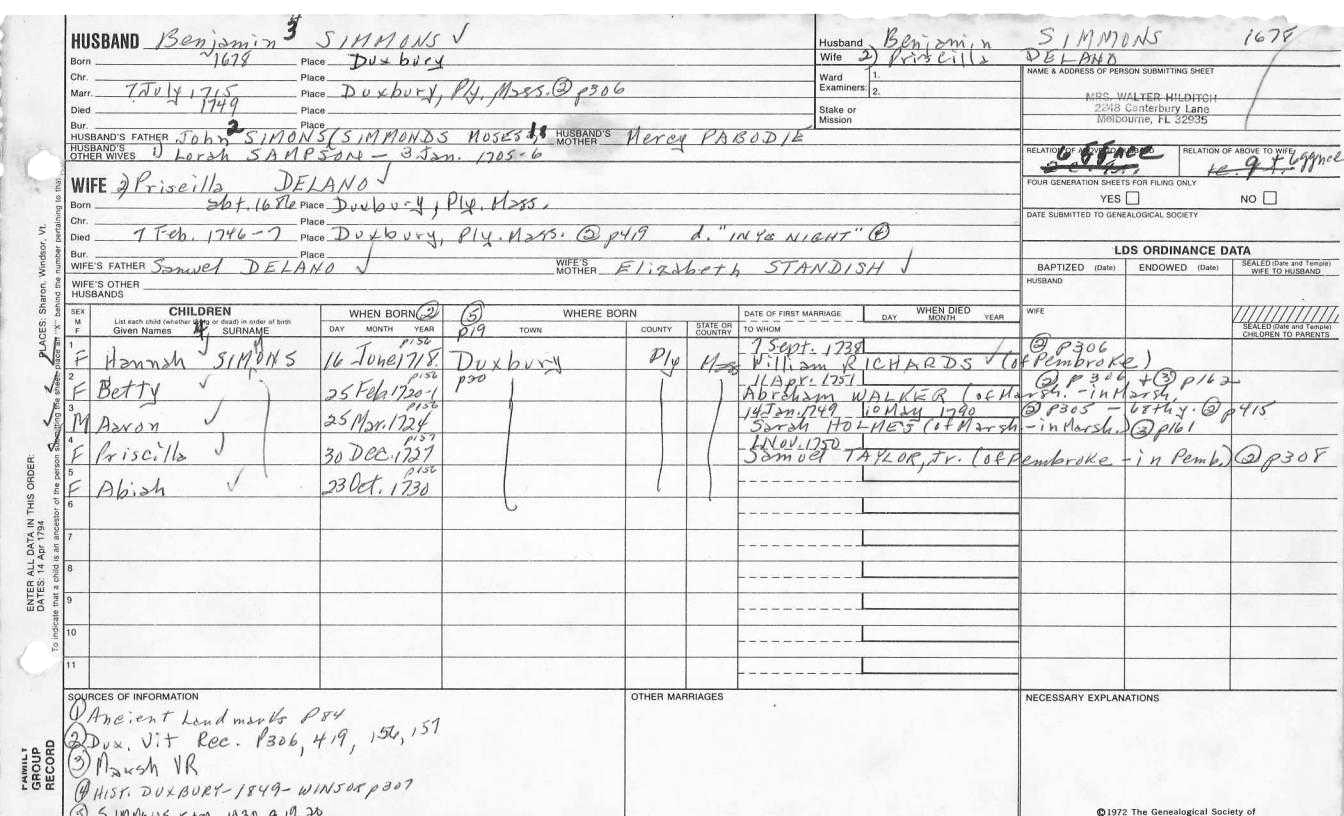 HUSBAND Benjamin 3 SIMMONS ✓
Born 1678 Place Duxbury
Chr. Place
Marr. 7 July 1715 Place Duxbury, Ply, Mass. ② p306
Died 1749 Place
Bur. Place
HUSBAND'S FATHER John 2 SIMONS (SIMMONDS MOSES HUSBAND'S MOTHER Mercy PABODIE
HUSBAND'S OTHER WIVES 1) Lorah SAMPSON – 3 Jan. 1705-6
WIFE 2) Priscilla DELANO ✓
Born abt. 1686 Place Duxbury, Ply. Mass.
Chr. Place
Died 7 Feb. 1746-7 Place Duxbury, Ply. Mass. ② p419 d. "IN YE NIGHT" ④
Bur. Place
WIFE'S FATHER Samuel DELANO ✓ WIFE'S MOTHER Elizabeth STANDISH ✓
WIFE'S OTHER HUSBANDS
Husband Benjamin SIMMONS 1678
Wife 2) Priscilla DELANO
Ward Examiners: 1.
2.
Stake or Mission
NAME & ADDRESS OF PERSON SUBMITTING SHEET
MRS. WALTER HILDITCH
2248 Canterbury Lane
Melbourne, FL 32935
RELATION OF ABOVE TO HUSBAND 6 ggnce
RELATION OF ABOVE TO WIFE 6ggnce
FOUR GENERATION SHEETS FOR FILING ONLY
YES ☐ NO ☐
DATE SUBMITTED TO GENEALOGICAL SOCIETY
LDS ORDINANCE DATA
BAPTIZED (Date) ENDOWED (Date) SEALED (Date and Temple) WIFE TO HUSBAND
HUSBAND
WIFE
SEALED (Date and Temple) CHILDREN TO PARENTS
SEX M F
CHILDREN
List each child (whether living or dead) in order of birth
Given Names 4 SURNAME
WHEN BORN ②
DAY MONTH YEAR
⑤ p19 WHERE BORN
TOWN COUNTY STATE OR COUNTRY
DATE OF FIRST MARRIAGE
TO WHOM
WHEN DIED
DAY MONTH YEAR
1 F Hannah ✓ SIMONS 16 June 1718 p156 Duxbury Ply Mass 7 Sept. 1738 ② p306
William RICHARDS ✓ (of Pembroke)
2 F Betty ✓ 25 Feb. 1720-1 p156 p20 11 Apr. 1751 ② p306 + ③ p162
Abraham WALKER (of Marsh. - in Marsh.
3 M Aaron ✓ 25 Mar. 1724 p156 14 Jan. 1749 10 May 1790 ② p305 – ② p415
Sarah HOLMES (of Marsh - in Marsh.) ③ p161
4 F Priscilla ✓ 30 Dec. 1727 p157 1 Nov. 1750
Samuel TAYLOR, Jr. (of Pembroke - in Pemb.) ② p308
5 F Abiah ✓ 23 Oct. 1730 p156
6
7
8
9
10
11
SOURCES OF INFORMATION
① Ancient Landmarks P84
② Dux. Vit Rec. P306, 419, 156, 157
③ Marsh VR
④ HIST. DUXBURY-1849- WINSOR p307
OTHER MARRIAGES
NECESSARY EXPLANATIONS
©1972 The Genealogical Society of
ENTER ALL DATA IN THIS ORDER:
DATES: 14 Apr 1794 PLACES: Sharon, Windsor, Vt.
To indicate that a child is an ancestor of the person submitting the sheet, place an "X" behind the number pertaining to that
FAMILY GROUP RECORD